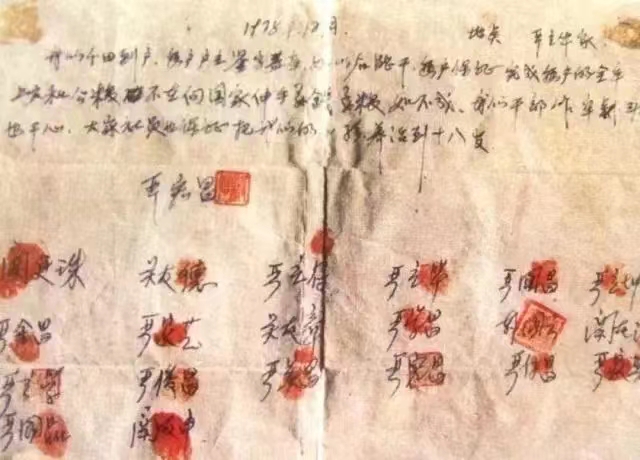 1978.12月. 地点 严立华家.
我们分田到户,每户户主签字盖章,如以后能干,每户保证完成每户的全年
上交和公粮 不在向国家伸手要钱要粮 如不成,我们干部作牢刹
也干心,大家社员也保证把我们的小孩养活到十八岁
严宏昌
关廷珠 关友德 严立符 严立华 严国昌 严立坤
严金昌 严家芝 关友章 严学昌 韩国云 关友
严立学 严俊昌 严美昌 严宏昌 严付昌 严家
严国品 关友申